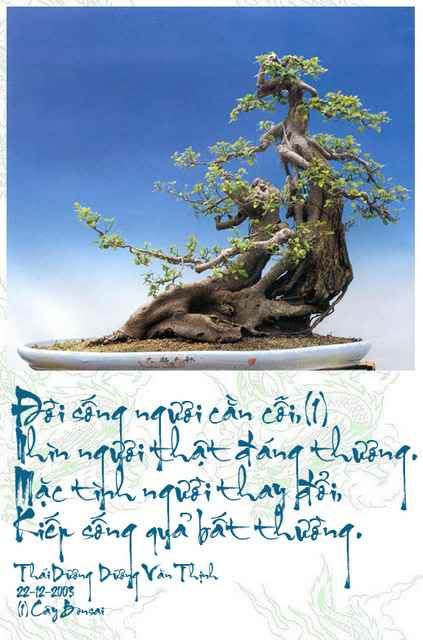 Đời sống người cằn cỗi,(1)
Nhìn người thật đáng thương.
Mặc tình người thay đổi,
Kiếp sống quả bất thường.
Thái Dương Dương Văn Thịnh
22-12-2003
(1) Cây Bonsai